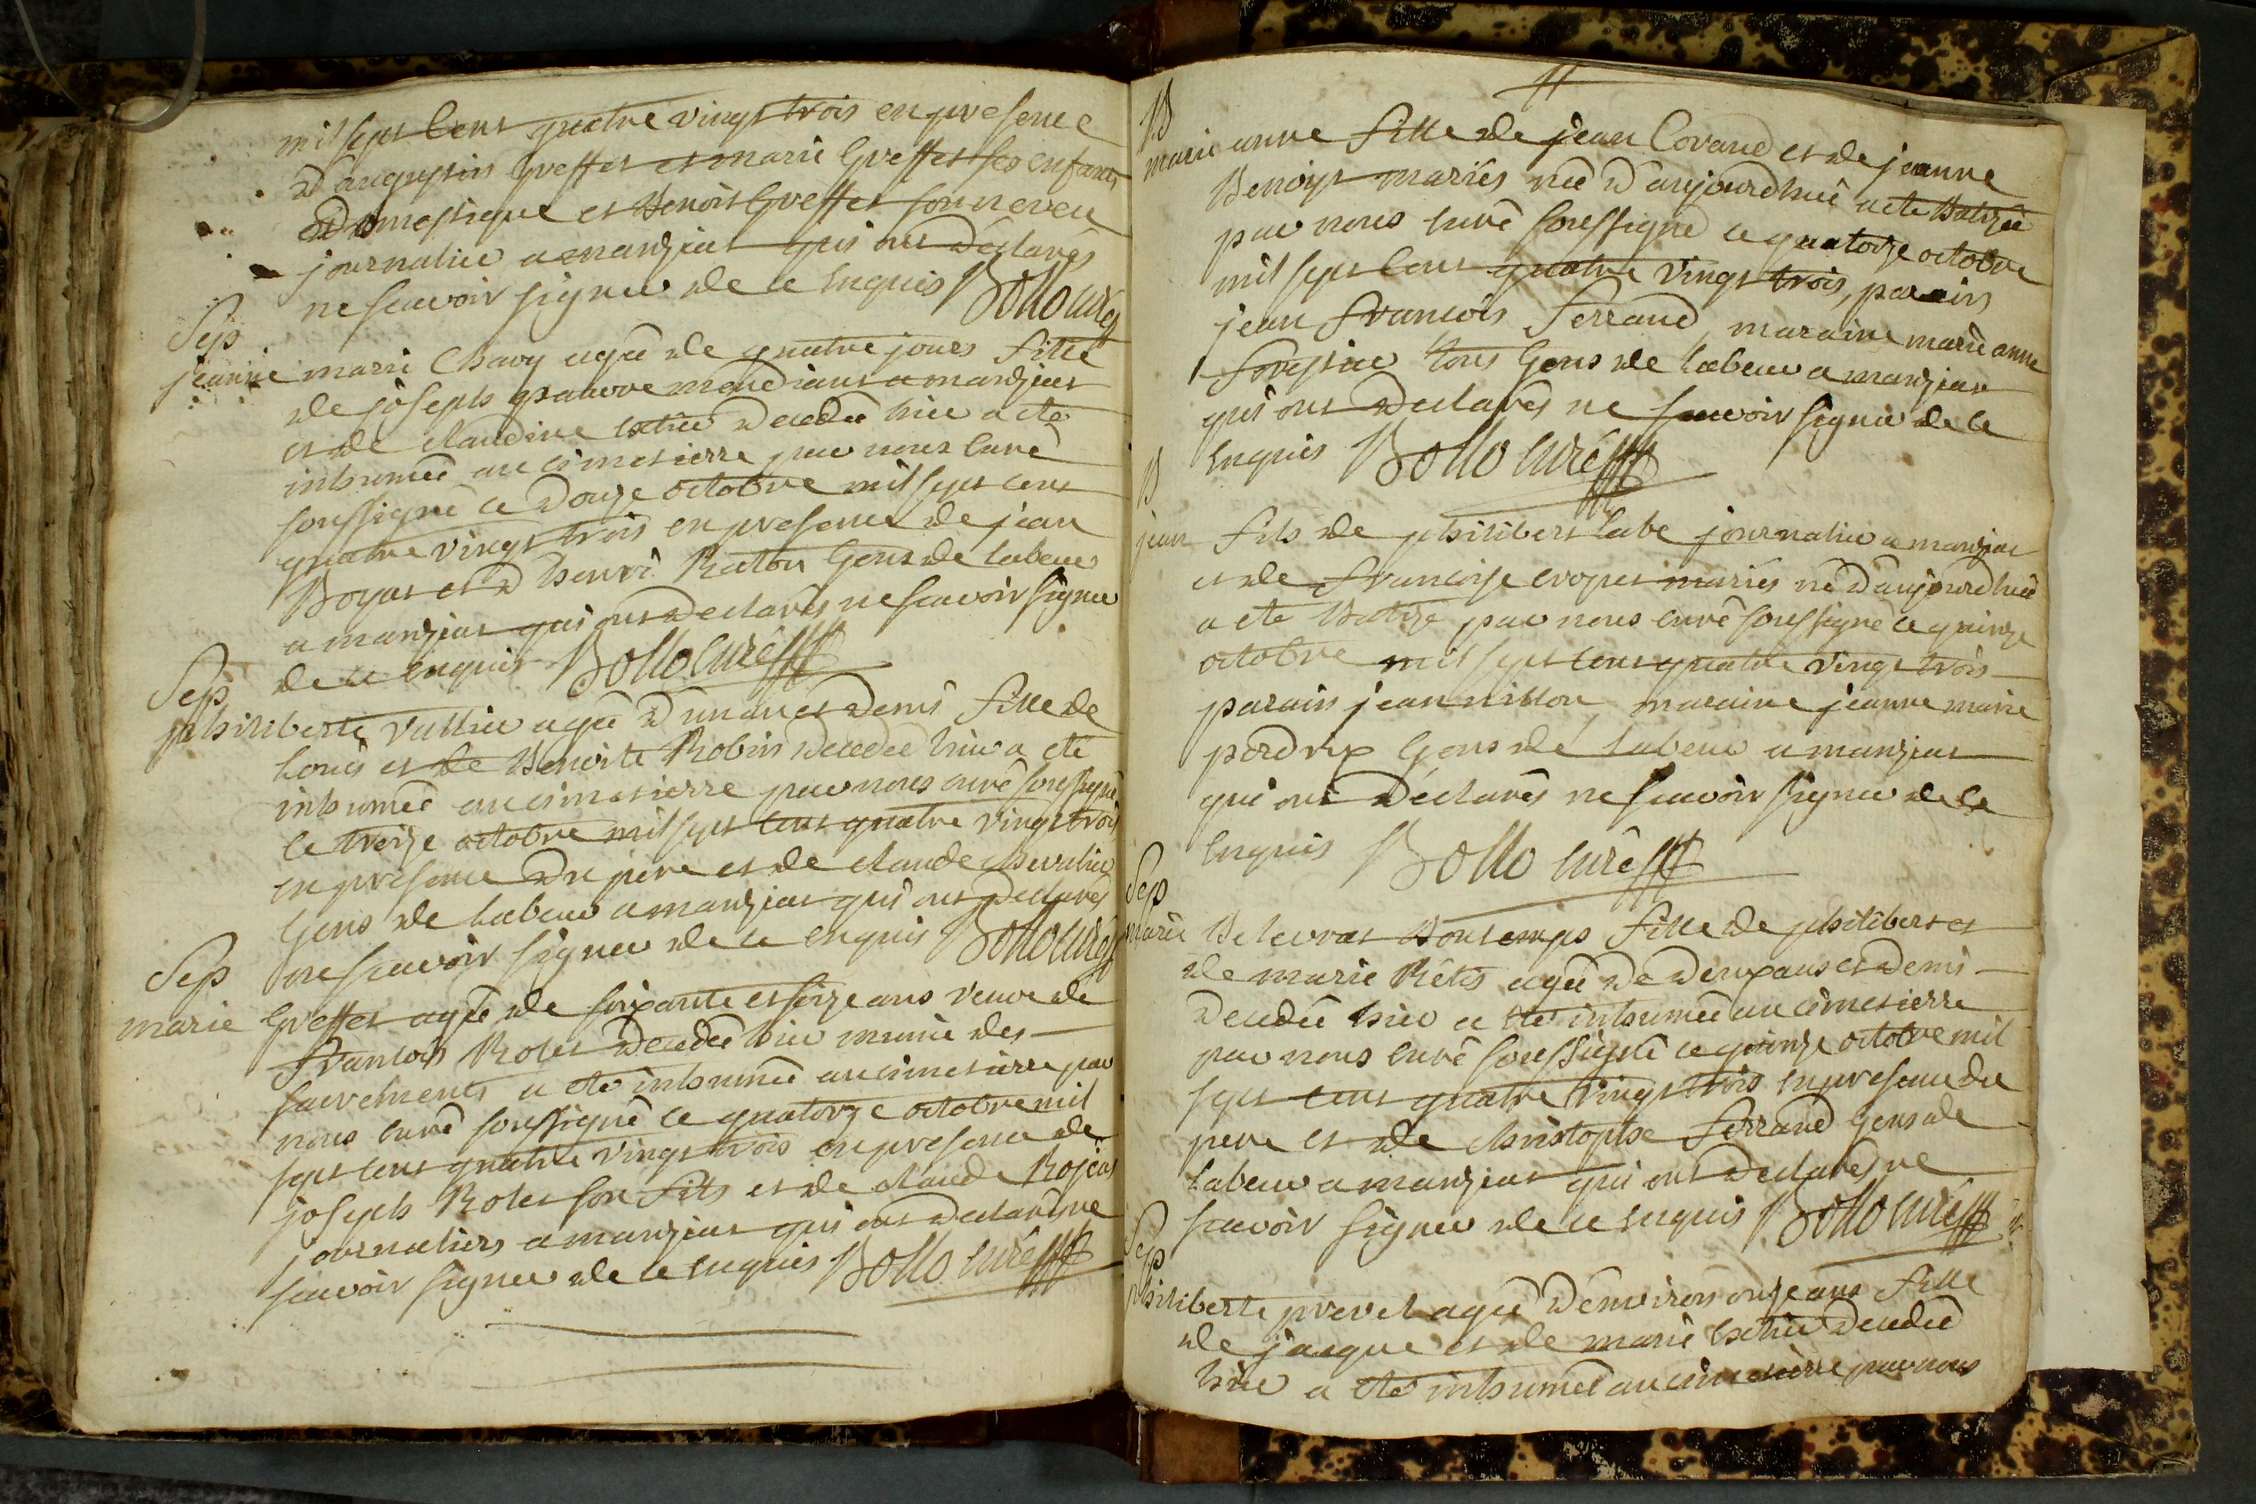 mil sept cent quatre vingt trois en presence
d'augustin Greffet et marie Greffet ses enfants
domestique et Benoit Greffet son neveu
journalier a manziat qui ont declarés
ne scavoir signer de ce enquis Bollo curé
Sep
jeanne marie Chavy agée de quatre jours fille
de joseph pauvre mendiant a manziat
et de claudine decedée hier a été
inhumée au cimetierre par nous curé
soussigné ce douze octobre mil sept cent
quatre vingt trois en presence de jean
Boyat et d henri Raton Gens de labeur
a manziat qui ont declarés ne scavoir signer
de ce enquis Bollo curé
Sep
philiberte Vullier agée d'un an et demi fille de
Louis et de Benoite Robin decedée hier a eté
inhumée au cimetierre par nous curé soussigné
ce treize octobre mil sept cent quatre vingt trois
en presence du pere et de claude chevalier
Gens de labeur a manziat qui ont declarés
ne scavoir signer de ce enquis Bollo curé
Sep
marie Greffet agée de soixante et seize ans veuve de
francois Rolet decedée hier munie des
sacrements a eté inhumée au cimetierre par
nous curé soussigné ce quatorze octobre mil
sept cent quatre vingt trois en presence de
joseph Rolet son fils et de claude Rojat
journaliers a manziat qui ont declarés ne
scavoir signer de ce enquis Bollo curé
B
marie anne fille de jean Corand et de jeanne
Benoist mariés née d'aujourdhui a eté Batizée
par nous curé soussigné ce quatorze octobre
mil sept cent quatre vingt trois, parain
jean francois ferrand, maraine marie anne
tous Gens de labeur a manziat
qui ont declarés ne scavoir signer de ce
enquis Bollo curé
B
jean fils de philibert Labe journalier a manziat
et de francoise cropet mariés né d'aujourdhui
a eté Batizé par nous curé soussigné ce quinze
octobre mil sept cent quatre vingt trois
parain jean nillon maraine jeanne marie
perdrix Gens de labeur a manziat
qui ont declarés ne scavoir signer de ce
enquis Bollo curé
Sep
marie Belevrat Bontemps fille de philibert et
de marie Rêtis agée de deux ans et demi
decedée hier a eté inhumée au cimetierre
par nous curé soussigné ce quinze octobre mil
sept cent quatre vingt trois en presence du
pere et de christophe ferrand Gens de
labeur a manziat qui ont declarés ne
scavoir signer de ce enquis Bollo curé
Sep
philiberte prevel agée d'environ onze ans fille
de jacque et de marie decedée
hier a eté inhumée au cimetierre par nous